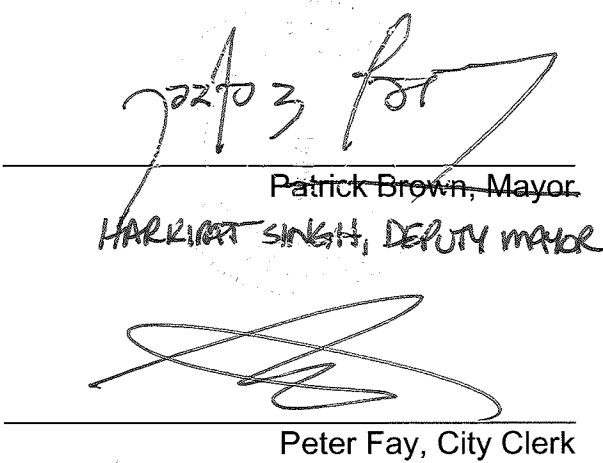 Patrick Brown, Mayor
HARKIRAT SINGH, DEPUTY MAYOR
Peter Fay, City Clerk